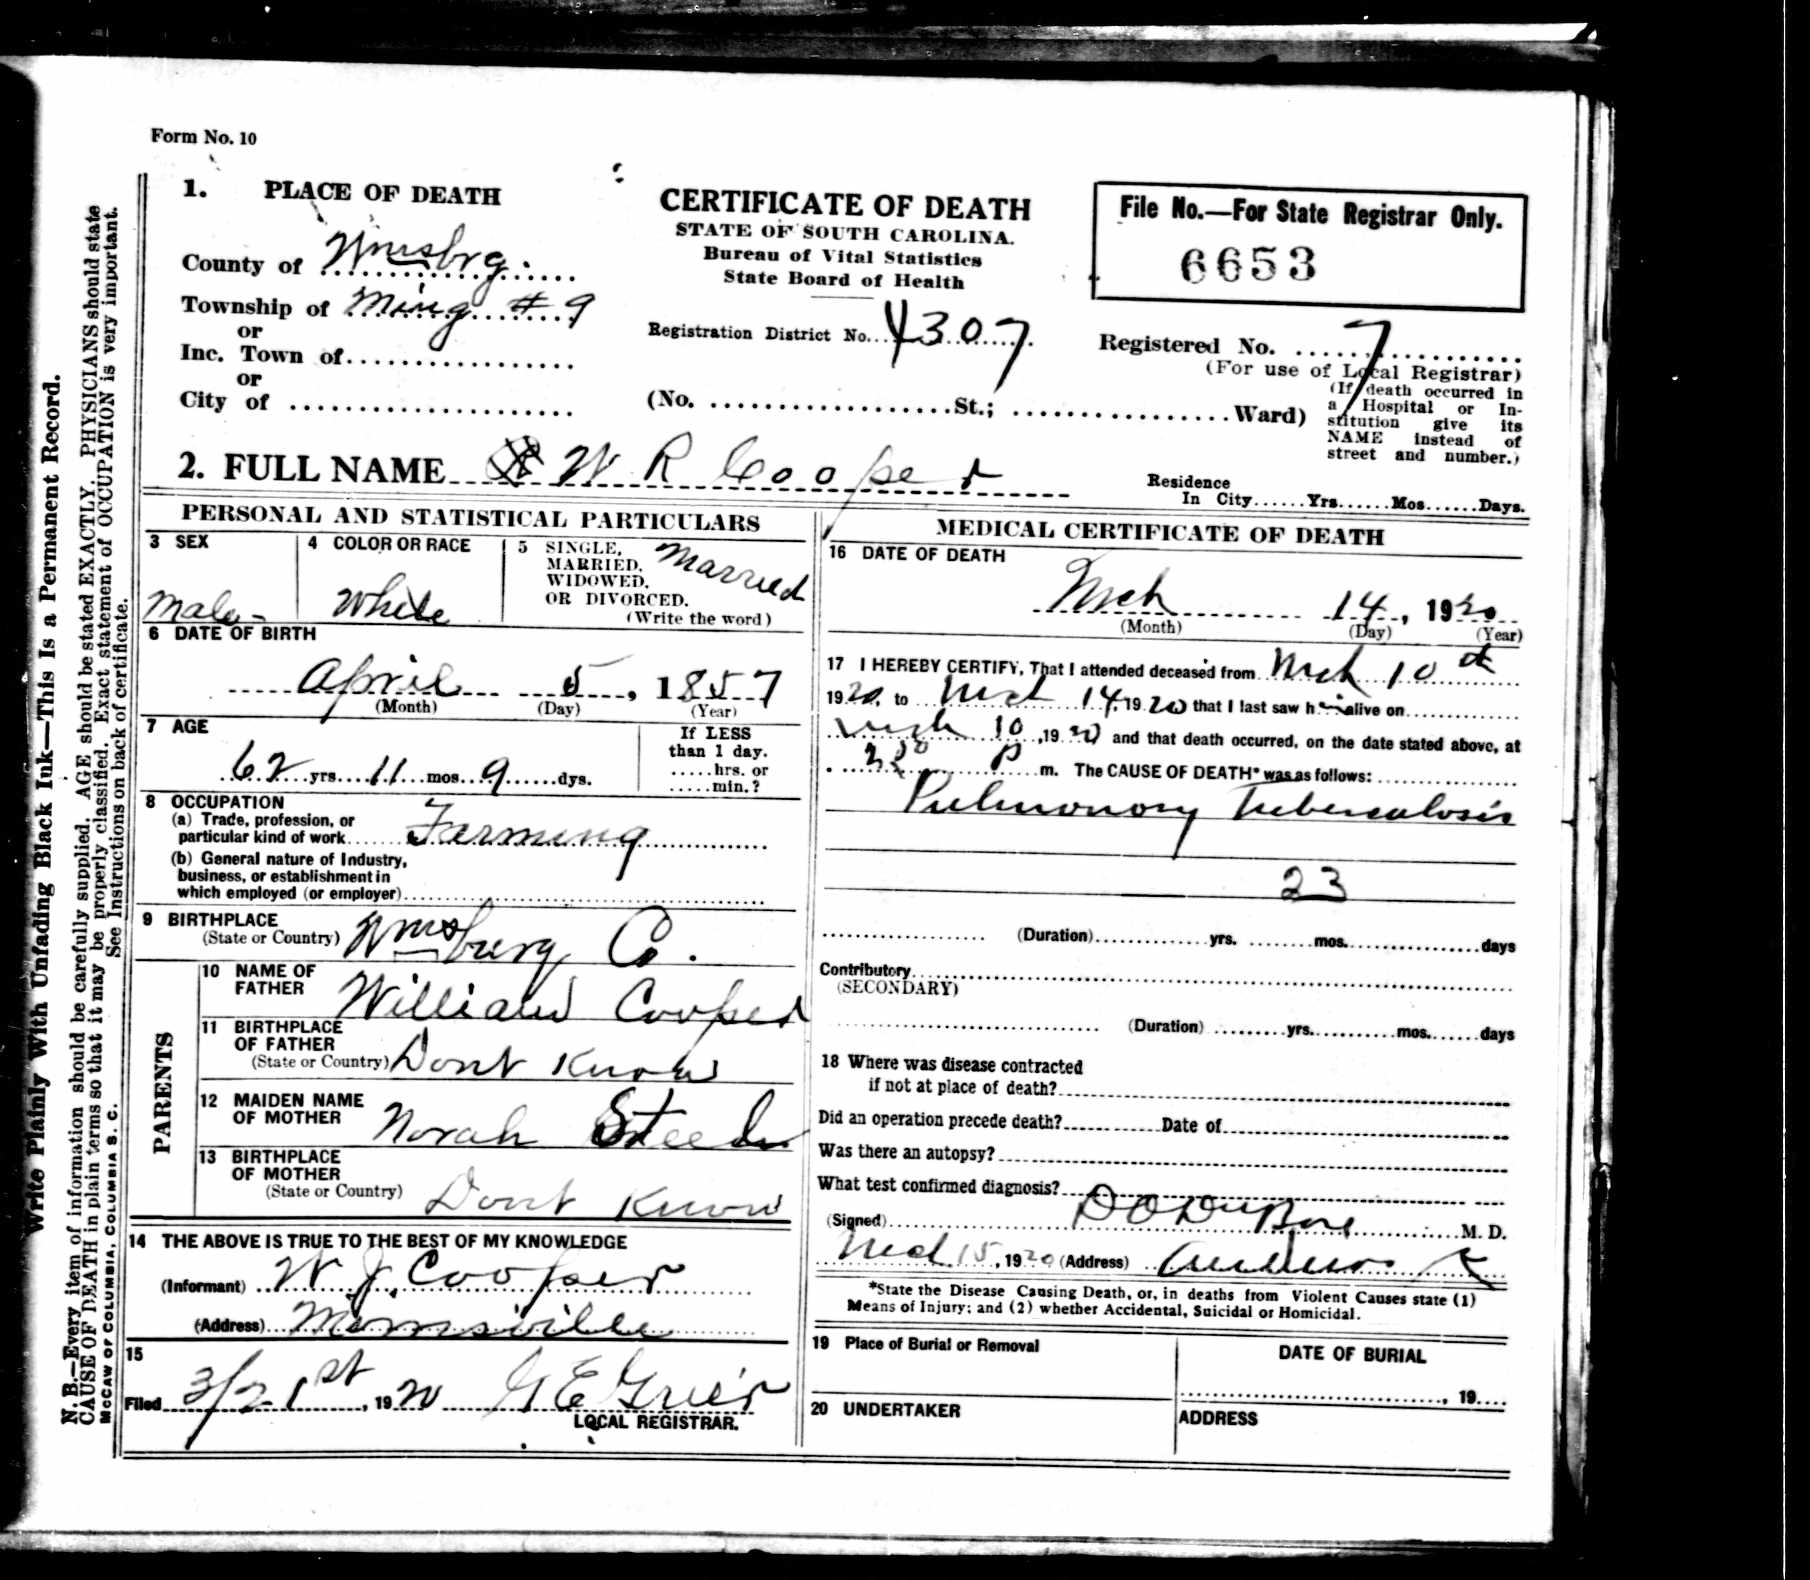 Form No. 10
1. PLACE OF DEATH
County of Wmsbrg.
Township of Ming #9
or
Inc. Town of
or
City of
CERTIFICATE OF DEATH
STATE OF SOUTH CAROLINA.
Bureau of Vital Statistics
State Board of Health
Registration District No. 4307
(No. St.; Ward)
File No.—For State Registrar Only.
6653
Registered No. 7
(For use of Local Registrar)
(If death occurred in
a Hospital or In-
stitution give its
NAME instead of
street and number.)
2. FULL NAME W R Cooper
Residence
In City Yrs. Mos. Days.
PERSONAL AND STATISTICAL PARTICULARS
3 SEX
Male
4 COLOR OR RACE
White
5 SINGLE,
MARRIED,
WIDOWED,
OR DIVORCED.
(Write the word)
Married
6 DATE OF BIRTH
April 5, 1857
(Month) (Day) (Year)
7 AGE
62 yrs. 11 mos. 9 dys.
If LESS
than 1 day.
hrs. or
min.?
8 OCCUPATION
(a) Trade, profession, or
particular kind of work Farming
(b) General nature of Industry,
business, or establishment in
which employed (or employer)
9 BIRTHPLACE
(State or Country) Wmsburg Co.
PARENTS
10 NAME OF
FATHER William Cooper
11 BIRTHPLACE
OF FATHER
(State or Country) Dont Know
12 MAIDEN NAME
OF MOTHER Norah
13 BIRTHPLACE
OF MOTHER
(State or Country) Dont Know
14 THE ABOVE IS TRUE TO THE BEST OF MY KNOWLEDGE
(Informant) W J. Cooper
(Address) Morrisville
15
Filed 3/21st, 1920 G E Grier
LOCAL REGISTRAR.
MEDICAL CERTIFICATE OF DEATH
16 DATE OF DEATH
Mch 14, 1920
(Month) (Day) (Year)
17 I HEREBY CERTIFY, That I attended deceased from Mch 10th
1920, to Mch 14, 1920 that I last saw him alive on
Mch 10, 1920 and that death occurred, on the date stated above, at
P m. The CAUSE OF DEATH* was as follows:
Pulmonary Tuberculosis
23
(Duration) yrs. mos. days
Contributory
(SECONDARY)
(Duration) yrs. mos. days
18 Where was disease contracted
if not at place of death?
Did an operation precede death? Date of
Was there an autopsy?
What test confirmed diagnosis?
(Signed) D O DuBose M. D.
Mch 15, 1920 (Address) Andrews
*State the Disease Causing Death, or, in deaths from Violent Causes state (1)
Means of Injury; and (2) whether Accidental, Suicidal or Homicidal.
19 Place of Burial or Removal
DATE OF BURIAL
, 19
20 UNDERTAKER
ADDRESS
Write Plainly With Unfading Black Ink—This Is a Permanent Record.
N. B.—Every item of information should be carefully supplied. AGE should be stated EXACTLY. PHYSICIANS should state
CAUSE OF DEATH in plain terms so that it may be properly classified. Exact statement of OCCUPATION is very important.
See Instructions on back of certificate.
McCAW OF COLUMBIA, COLUMBIA S. C.